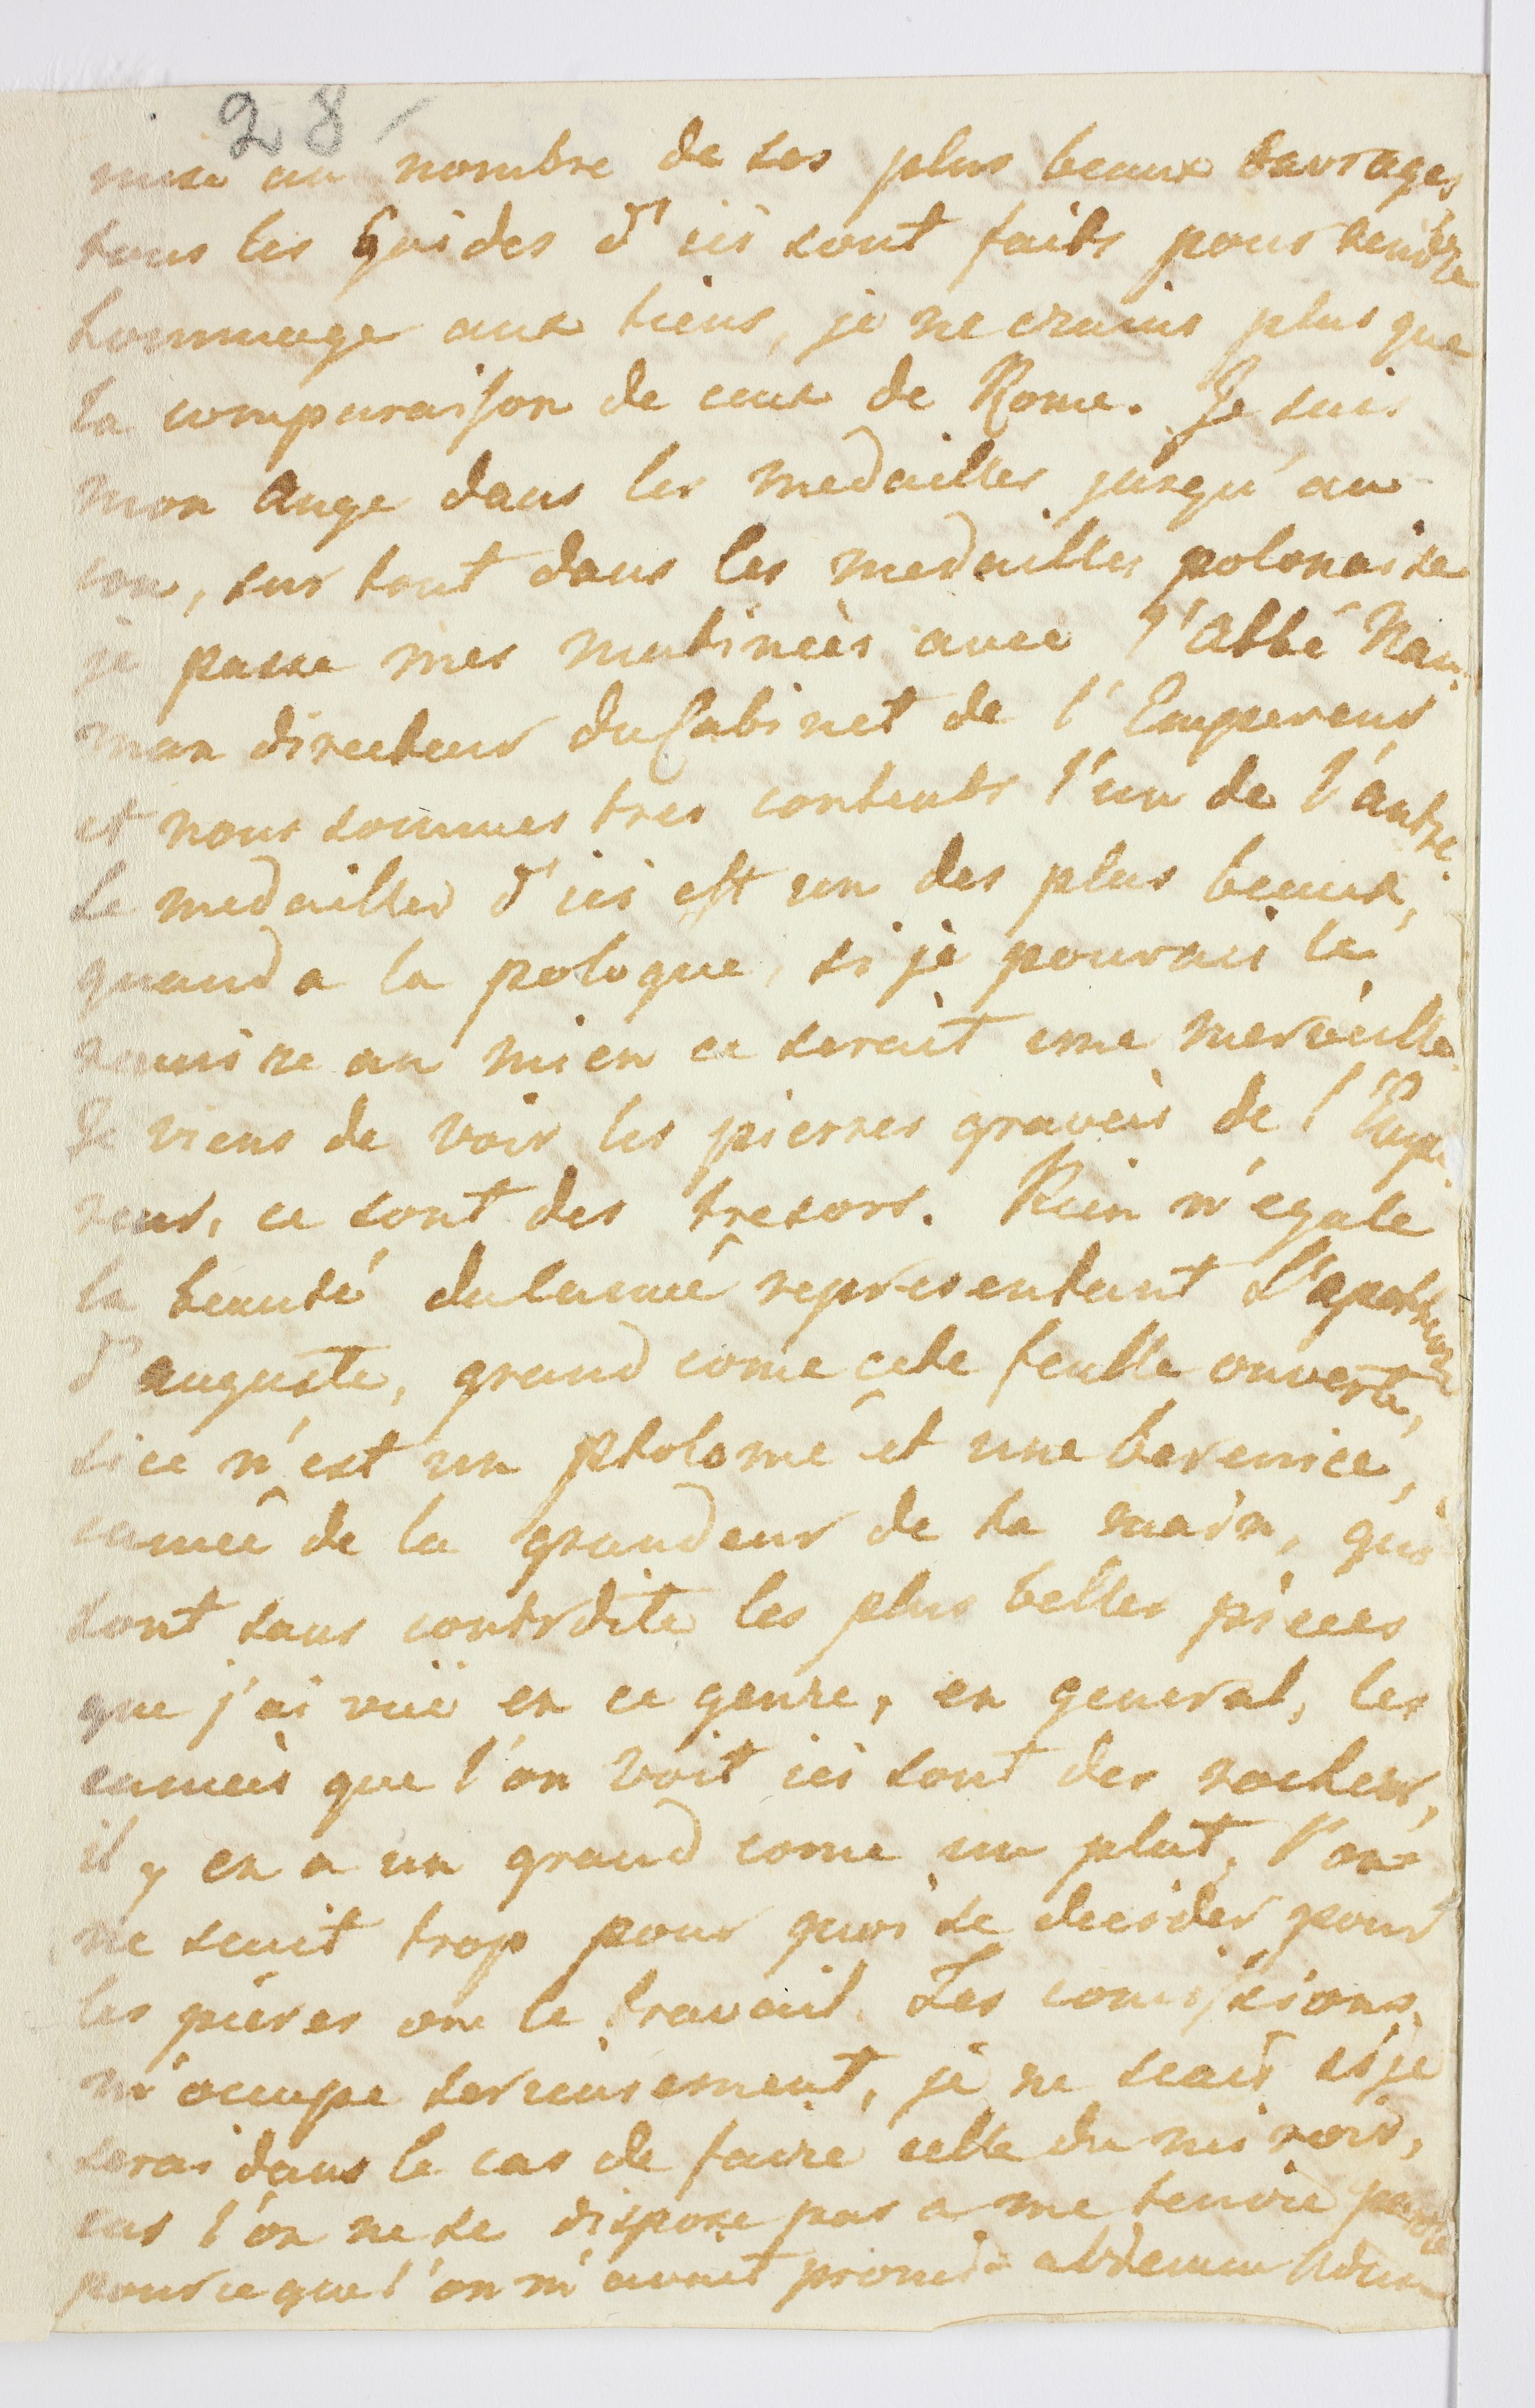 28
mise au nombre de ses plus beaux ouvrages
tous les Guides d'ici sont faits pour rendre
hommage aux tiens, je ne crains plus que
la comparaison de ceux de Rome. Je suis
mon ange dans les medailles jusqu'au
cou, sur tout dans les medailles polonaise
je passe mes matineés avec l'abbé Nau-
man directeur du Cabinet de l'Empereur
et nous sommes tres contents l'un de l'autre.
Le medailler d'ici est un des plus beaux,
quand a la pologne, si je pourais le
reunire au mien ce serait une merveille.
Je viens de voir les pierres graveés de l'Empe-
reur, ce sont des tresors. Rien n'egale
la beauté du cameé representant l'apotheose
d'auguste, grand come cete feulle ouverte,
si ce n'est un ptolomé et une berenice,
cameé de la grandeur de ta main, qui
sont sans contrdite les plus belles pieces
que j'ai vüe en ce genre, en general, les
cameés que l'on voit ici sont des rochers,
il y en a un grand come un plat, l'on
ne scait trop pour quoi se decider pour
les pieres ou le travail. Les comissions
m'occupe serieusement, je ne scais si je
serai dans le cas de faire celle du miroir,
car l'on ne se dispose pas a me tenire parole
pour ce que l'on m'avait promis